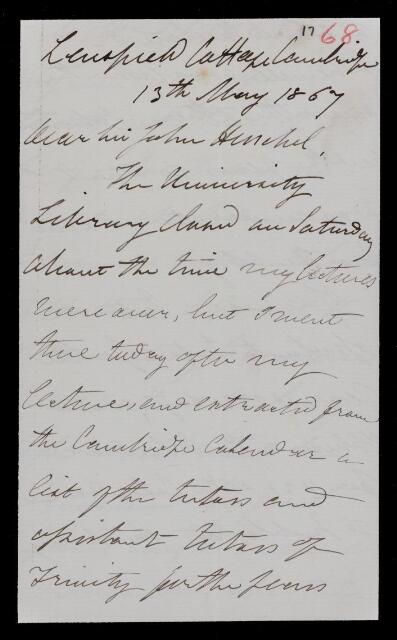 17 68.
Lensfield Cottage Cambridge
13th May 1867
Dear Sir John Herschel,
The University
Library closed on Saturday
about the time my lectures
were over, but I went
there today after my
lecture, and extracted from
the Cambridge Calendar a
list of the tutors and
assistant tutors of
Trinity for the years